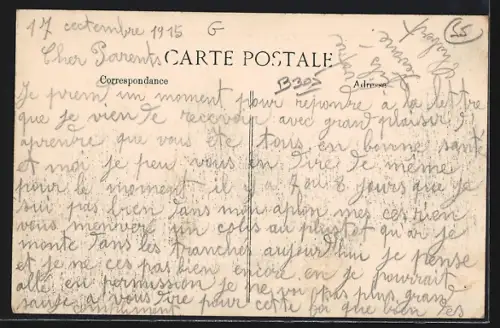 17 cectembre 1915 G
55
Cher Parents CARTE POSTALE
Correspondance
B305
Adresse
Je prend un moment pour repondre a la lettre
que je vien de recevoir avec grand plaisir d
aprendre que vous ête tous en bonne santé
et moi je peu vous en dire de même
pour le moment il y a 7 ou 8 jours que je
sui pas bien dans mon aplon mes ces rien
vous un colis au plustot qu'ar je
monte dans les tranches aujourd'hui je pense
et je ne ces pas bien encore en je pourrait
allé en permission je ne vu pas plus grand
a vous dire pour cette foi que bien des